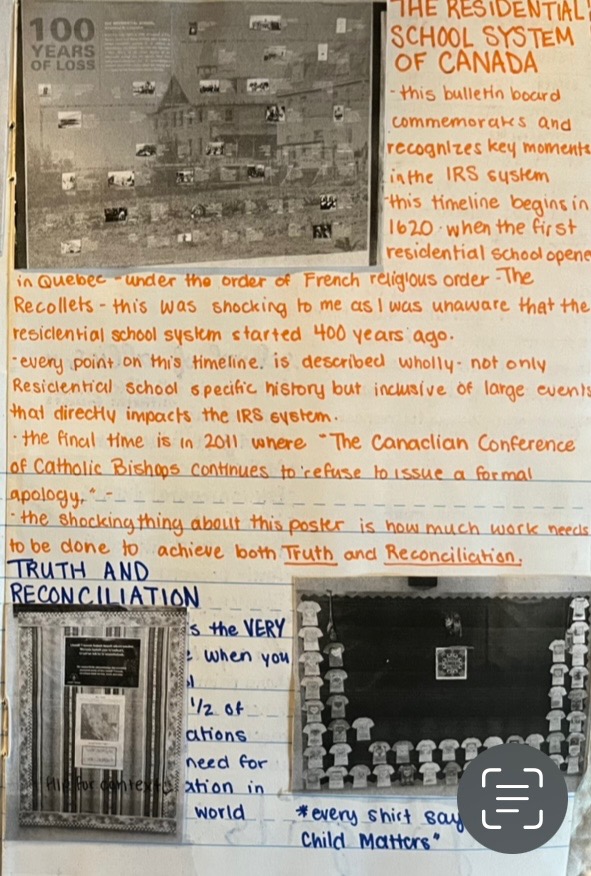 100
YEARS
OF LOSS
THE RESIDENTIAL
SCHOOL SYSTEM
OF CANADA
- this bulletin board
commemorates and
recognizes key moments
in the IRS system
- this timeline begins in
1620 - when the first
residential school opene
in Quebec - under the order of French religious order - The
Recollets - this was shocking to me as I was unaware that the
residential school system started 400 years ago.
- every point on this timeline is described wholly - not only
Residential school specific history but inclusive of large events
that directly impacts the IRS system.
- the final time is in 2011 where "The Canadian Conference
of Catholic Bishops continues to refuse to issue a formal
apology." -
- the shocking thing about this poster is how much work needs
to be done to achieve both Truth and Reconciliation.
TRUTH AND
RECONCILIATION
s the VERY
when you
1/2 of
ations
need for
ation in
world
flip for context
*every shirt say
Child Matters"